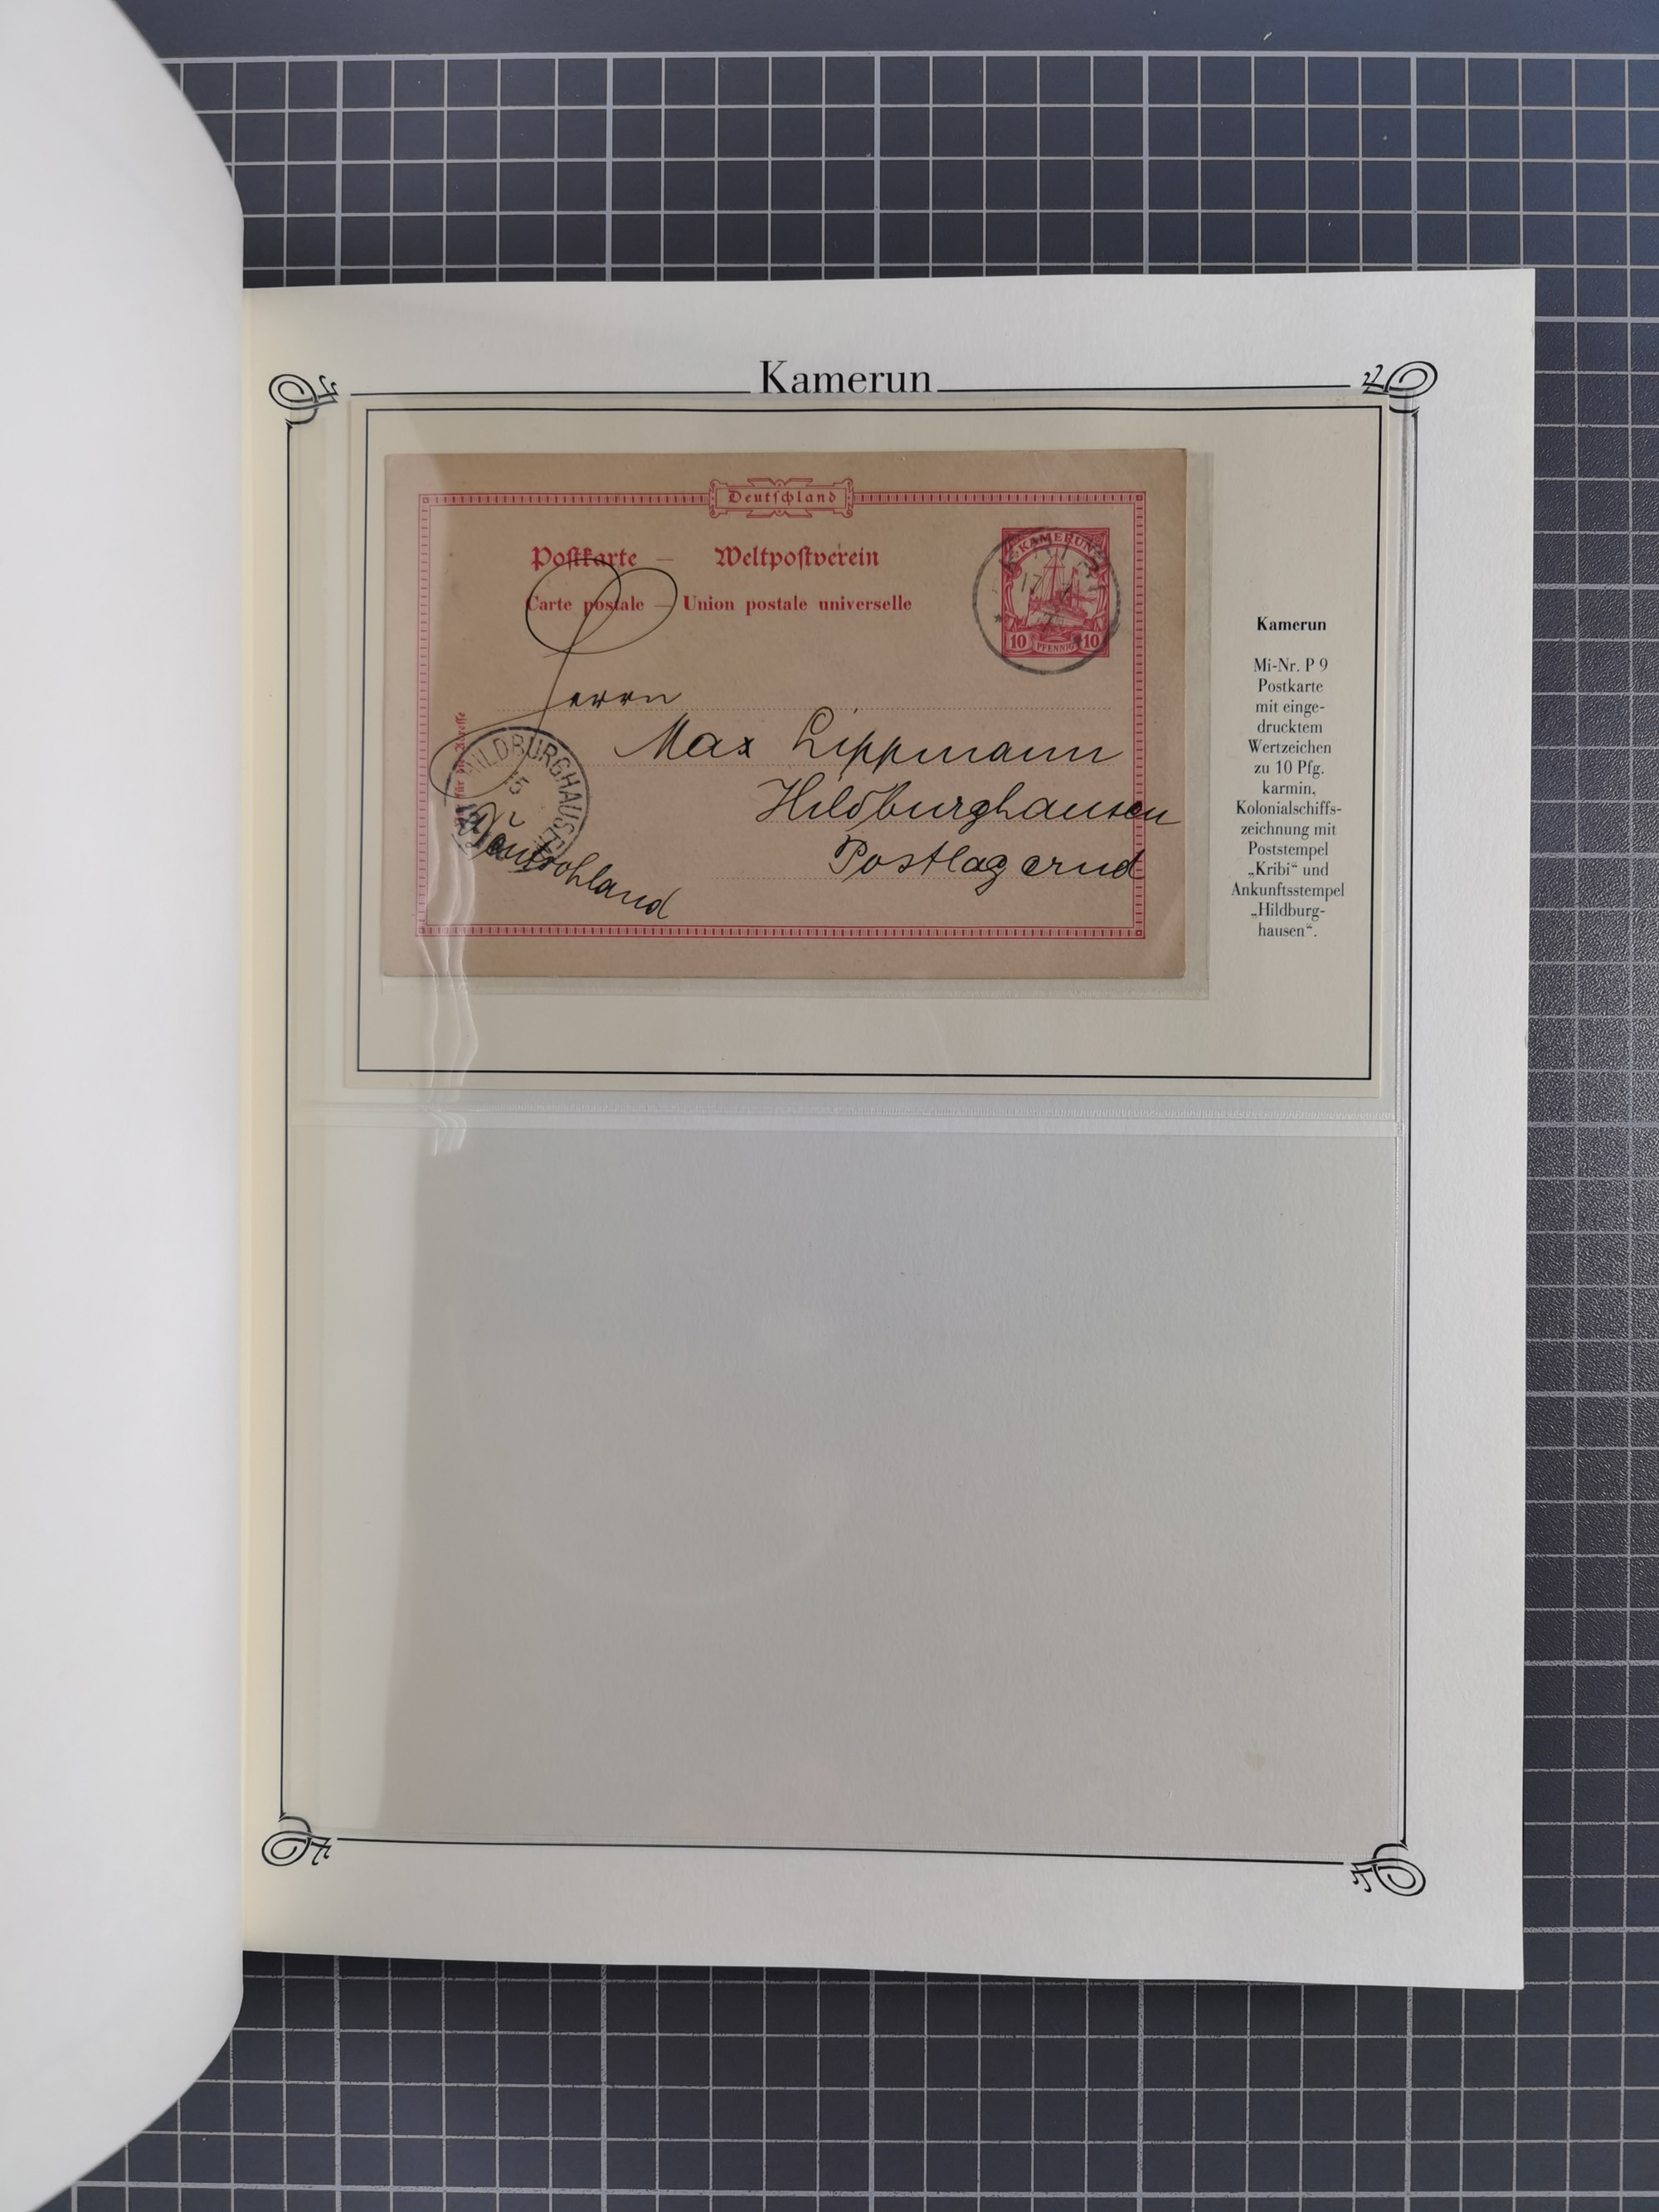 Kamerun
Deutschland
Postkarte — Weltpostverein
Carte postale — Union postale universelle
KAMERUN
17
10 PFENNIG 10
Herrn
Max Lippmann
Hildburghausen
Postlagernd
für die Adresse
HILDBURGHAUSEN
Deutschland
Kamerun
Mi-Nr. P 9
Postkarte
mit einge-
drucktem
Wertzeichen
zu 10 Pfg.
karmin,
Kolonialschiffs-
zeichnung mit
Poststempel
„Kribi“ und
Ankunftsstempel
„Hildburg-
hausen“.